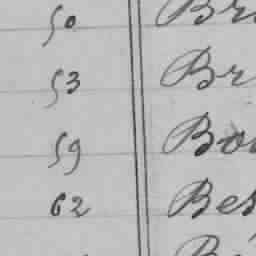 50 Br
53 Br
59 Bo
62 Bes